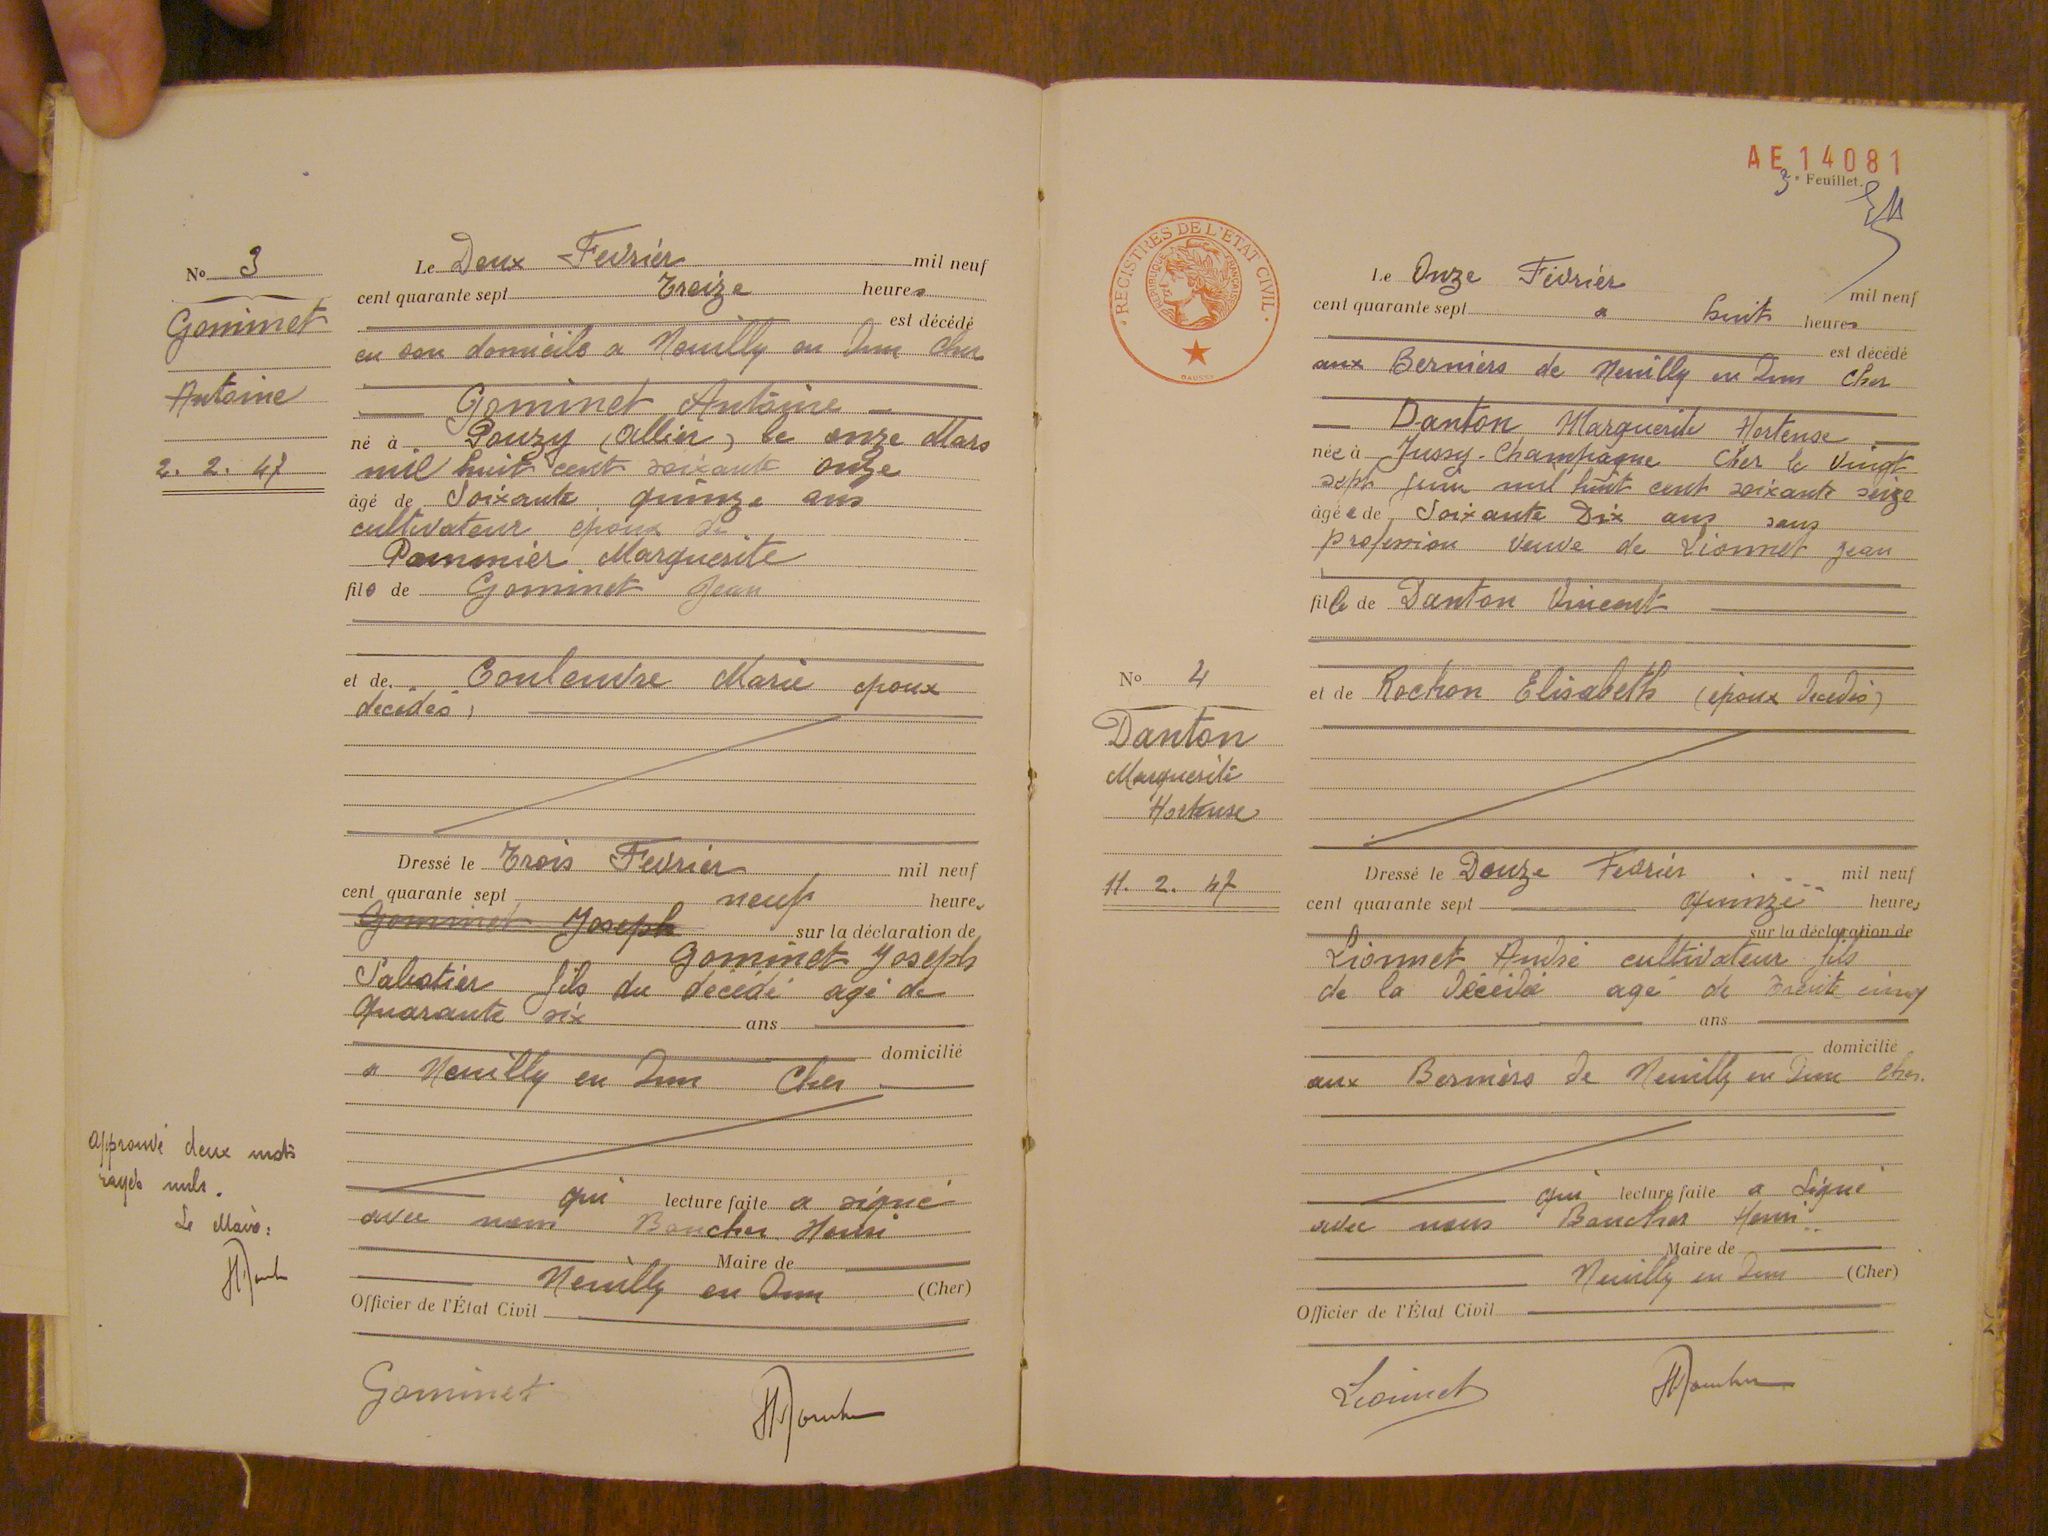 No 3
Gominet
Antoine
2. 2. 47
Le Deux Fevrier mil neuf
cent quarante sept Treize heures
est décédé
en son domicile a Neuilly en Dun Cher
Gominet Antoine
né à Pouzy (Allier) le onze Mars
mil huit cent soixante onze
âgé de Soixante quinze ans
cultivateur epoux de
Pommier Marguerite
fils de Gominet Jean
et de Coulendre Marie epoux
decédés,
Dressé le Trois Fevrier mil neuf
cent quarante sept neuf heures
Gominet Joseph sur la déclaration de
Gominet Joseph
Sabotier fils du décédé agé de
quarante six ans
domicilié
a Neuilly en Dun Cher
qui lecture faite a signé
avec nous Boucher Henri
Maire de
Neuilly en Dun (Cher)
Officier de l'État Civil
approuvé deux mots
rayés nuls.
Le Maire:
Gominet
AE 14081
3e Feuillet.
REGISTRES DE L'ETAT CIVIL
REPUBLIQUE FRANÇAISE
DAUSSY
No 4
Danton
Marguerite
Hortense
11. 2. 47
Le Onze Février mil neuf
cent quarante sept a huit heures
est décédé
aux Berniers de Neuilly en Dun Cher
Danton Marguerite Hortense
née à Jussy-Champagne Cher le Vingt
sept Juin mil huit cent soixante seize
âgée de Soixante Dix ans sans
profession veuve de Lionnet Jean
fille de Danton Vincent
et de Rochon Elisabeth (époux décédés)
Dressé le Douze Fevrier mil neuf
cent quarante sept quinze heures
sur la déclaration de
Lionnet André cultivateur fils
de la Décédée agé de Trente cinq
ans
domicilié
aux Berniers de Neuilly en Dun Cher.
qui lecture faite a Signé
avec nous Boucher Henri
Maire de
Neuilly en Dun (Cher)
Officier de l'État Civil
Lionnet